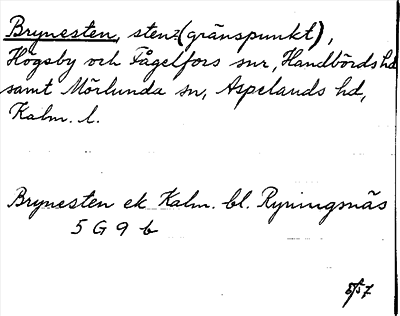 Brynesten, sten (gränspunkt),
Högsby och Fågelfors snr, Handbörds hd
samt Mörlunda sn, Aspelands hd,
Kalm. l.
Brynesten ek. Kalm. bl. Ryningsnäs
5 G 9 b